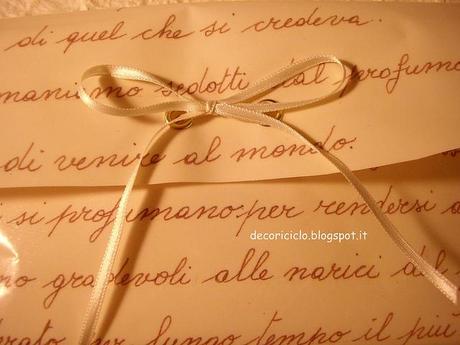 di quel che si credeva.
sedotti dal profumo
di venire al mondo.
si profumano per rendersi
decoriciclo.blogspot.it
gradevoli alle narici del
per lungo tempo il più